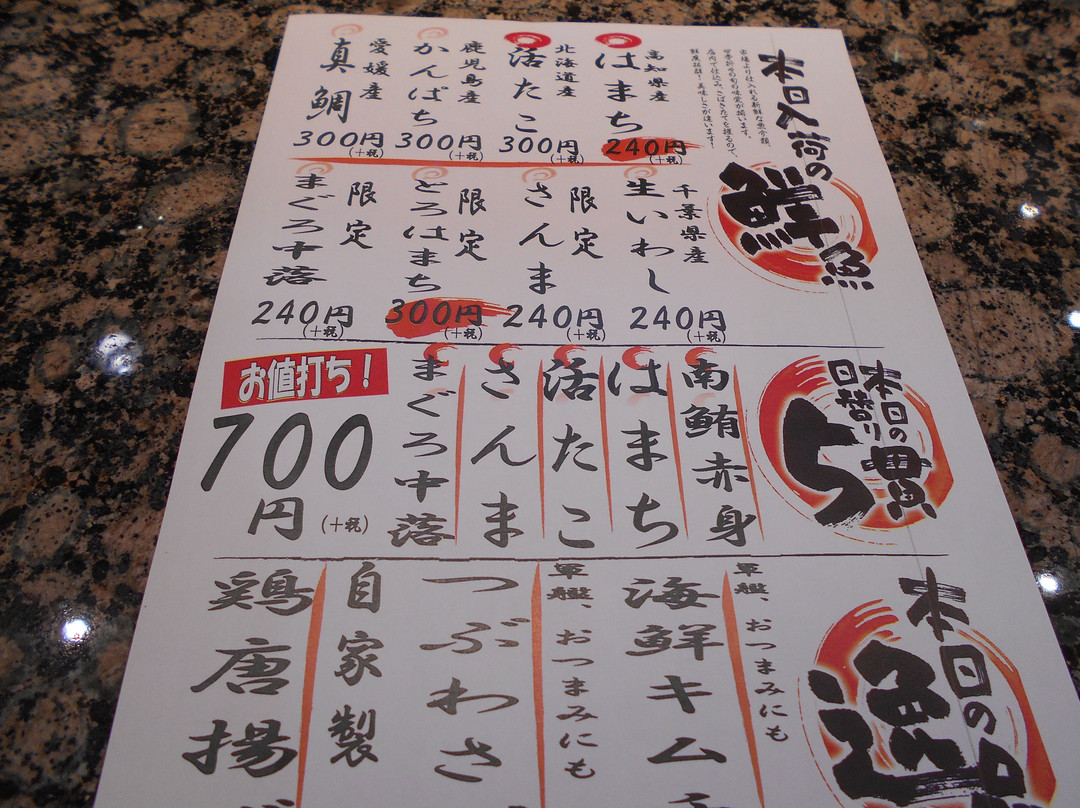 本日入荷の
鮮魚
市場より仕入れる新鮮な魚介類、
四季折々の旬の味覚が揃います。
店内で仕込み、さばきたてを握るので、
鮮度抜群!美味しさが違います!
高知県産
はまち
240円
(+税)
北海道産
活たこ
300円
(+税)
鹿児島産
かんぱち
300円
(+税)
愛媛産
真鯛
300円
(+税)
千葉県産
生いわし
240円
(+税)
限定
さんま
240円
(+税)
限定
とろはまち
300円
(+税)
限定
まぐろ中落
240円
(+税)
本日の
日替り
5貫
南鮪赤身
はまち
活たこ
さんま
まぐろ中落
お値打ち!
700
円
(+税)
本日の
逸品
軍艦、おつまみにも
海鮮キム
軍艦、おつまみにも
つぶわさ
自家製
鶏唐揚